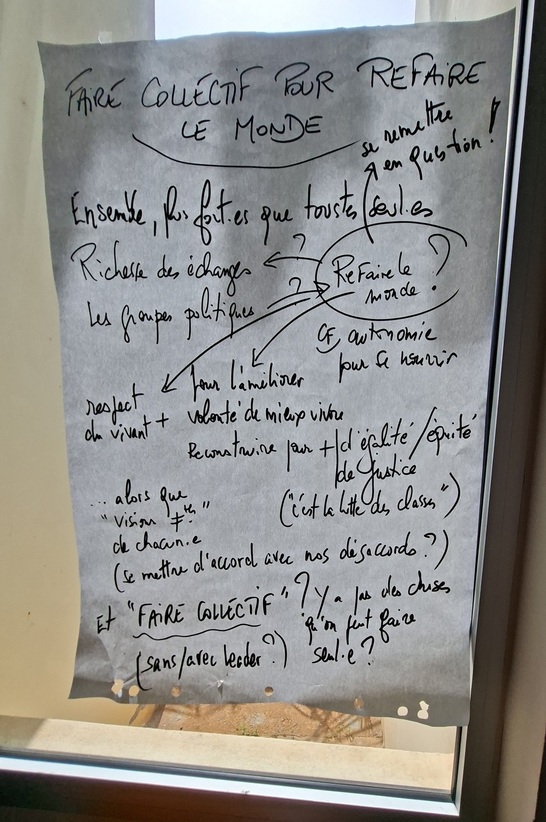 FAIRE COLLECTIF POUR REFAIRE
LE MONDE
se remettre
en question !
Ensemble, plus fort.es que toustes seul.es
Richesse des échanges
?
Refaire le
monde ?
Les groupes politiques
?
Cf, autonomie
pour se nourrir
respect
du vivant +
pour l'améliorer
volonté de mieux vivre
Reconstruire pour + d'égalité / équité
de justice
("c'est la lutte des classes")
... alors que
"vision ≠
de chacun.e
(se mettre d'accord avec nos désaccords ?)
Et "FAIRE COLLECTIF" ? Y a pas des choses
qu'on peut faire
seul.e ?
(sans/avec leader ?)